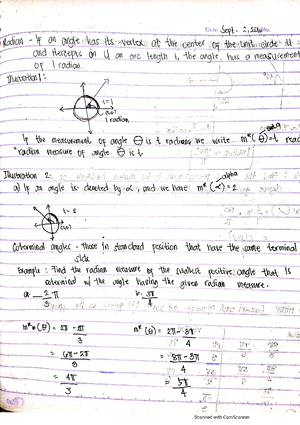 Date: Sept. 2, 20
Radian - If an angle has its vertex at the center of the unit circle
and intercepts on it an arc length 1, the angle has a measurement
of 1 radian.
Illustration 1:
t = 1
(1,0)
1 radian
If the measurement of angle θ is t radians we write m^R (θ) = t read
"radian measure of angle θ is t.
Illustration 2:
alpha
a) If an angle is denoted by α, and we have m^R (α) = 2
t = 2
(1,0)
Coterminal angles - those in standard position that have the same terminal
side
Example: Find the radian measure of the smallest positive angle that is
coterminal w/ the angle having the given radian measure.
a. -2/3 π b. 3π/4
m^R (θ) = 2π - 2π/3 m^R (θ) = 2π - 3π/4
= 6π - 2π/3 = 8π - 3π/4
= 4π/3 = 5π/4
Scanned with CamScanner